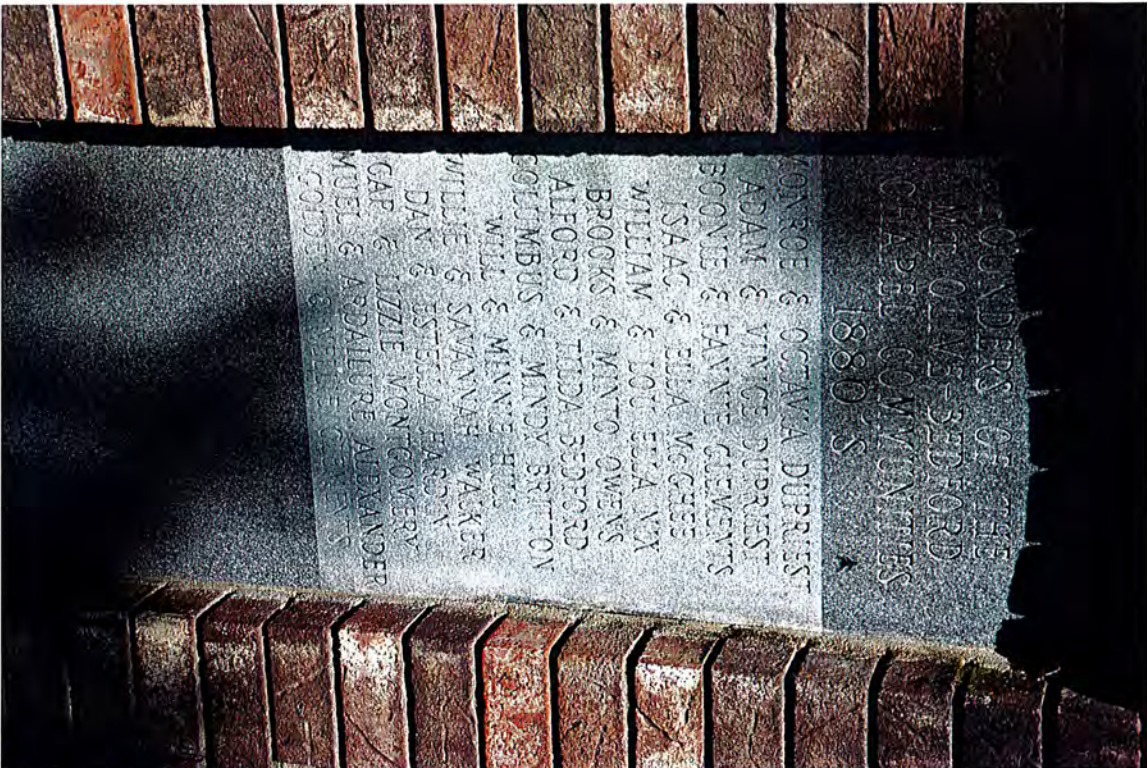 FOUNDERS OF THE
MT. OLIVE-BEDFORD
CHAPEL COMMUNITIES
1880'S
MONROE & OCTAVIA DUPRIEST
ADAM & VINCE DUPRIEST
BOONIE & FANNIE CLEMENTS
ISAAC & ELLA McGHEE
WILLIAM & LOU ELLA NIX
BROOKS & MINTO OWENS
ALFORD & TILDA BEDFORD
COLUMBUS & MINDY BRITTON
WILL & MINNIE HILL
WILLIE & SAVANNAH WALKER
DAN & ESTELLA HARDY
GAP & LIZZIE MONTGOMERY
MUEL & ARDAILURE ALEXANDER